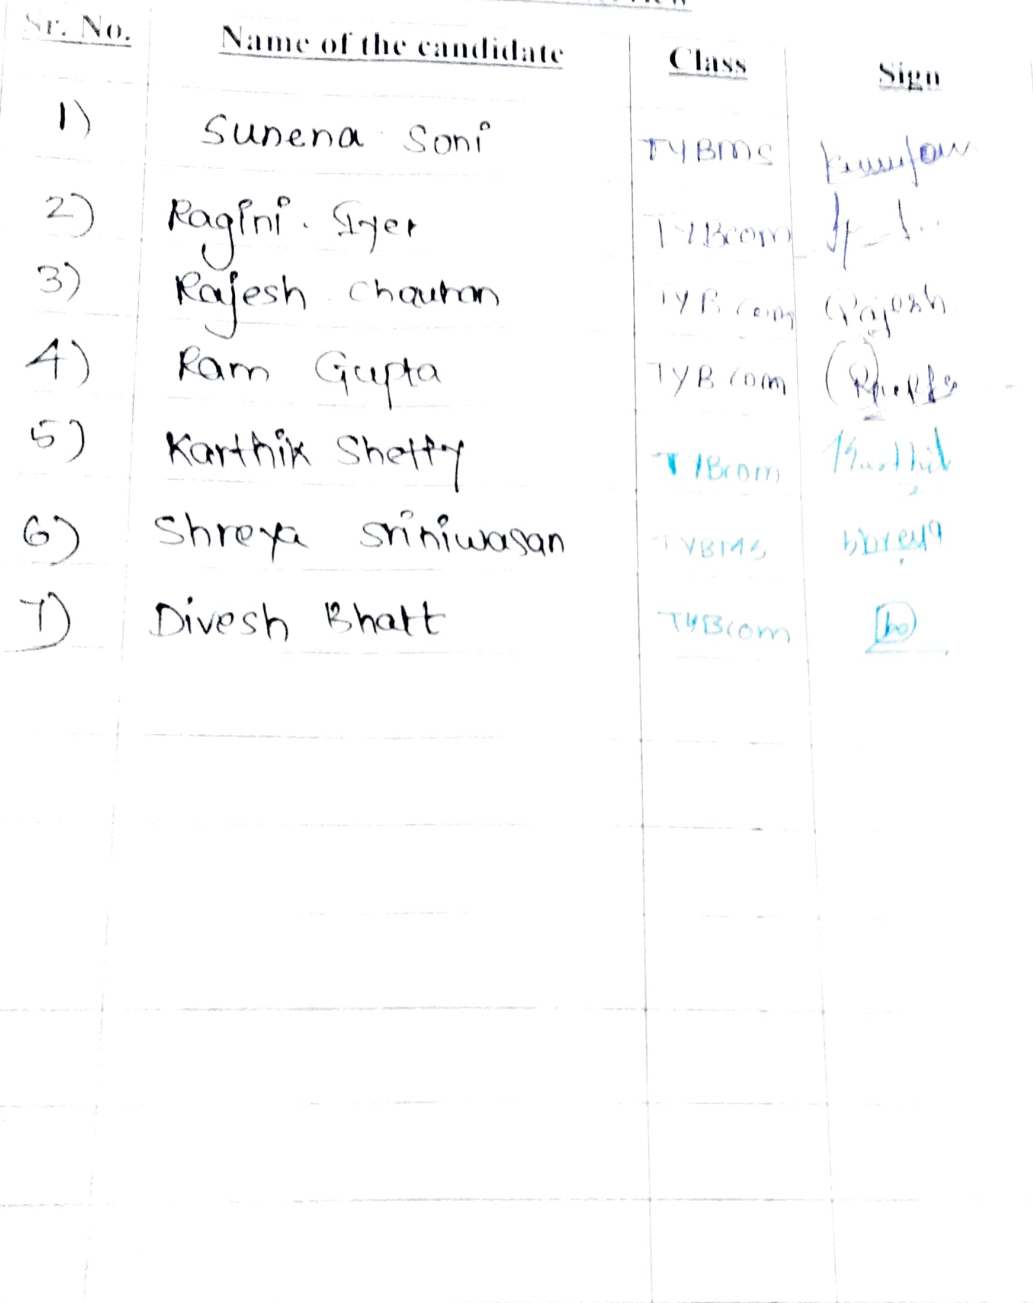 Sr. No. Name of the candidate Class Sign
1) Sunena Soni TYBMS
2) Ragini. Iyer TYBcom
3) Rajesh Chauhan TYBcom Rajesh
4) Ram Gupta TYBcom
5) Karthik Shetty TYBcom Karthik
6) Shreya Sriniwasan TYBMS Shreya
7) Divesh Bhatt TYBcom